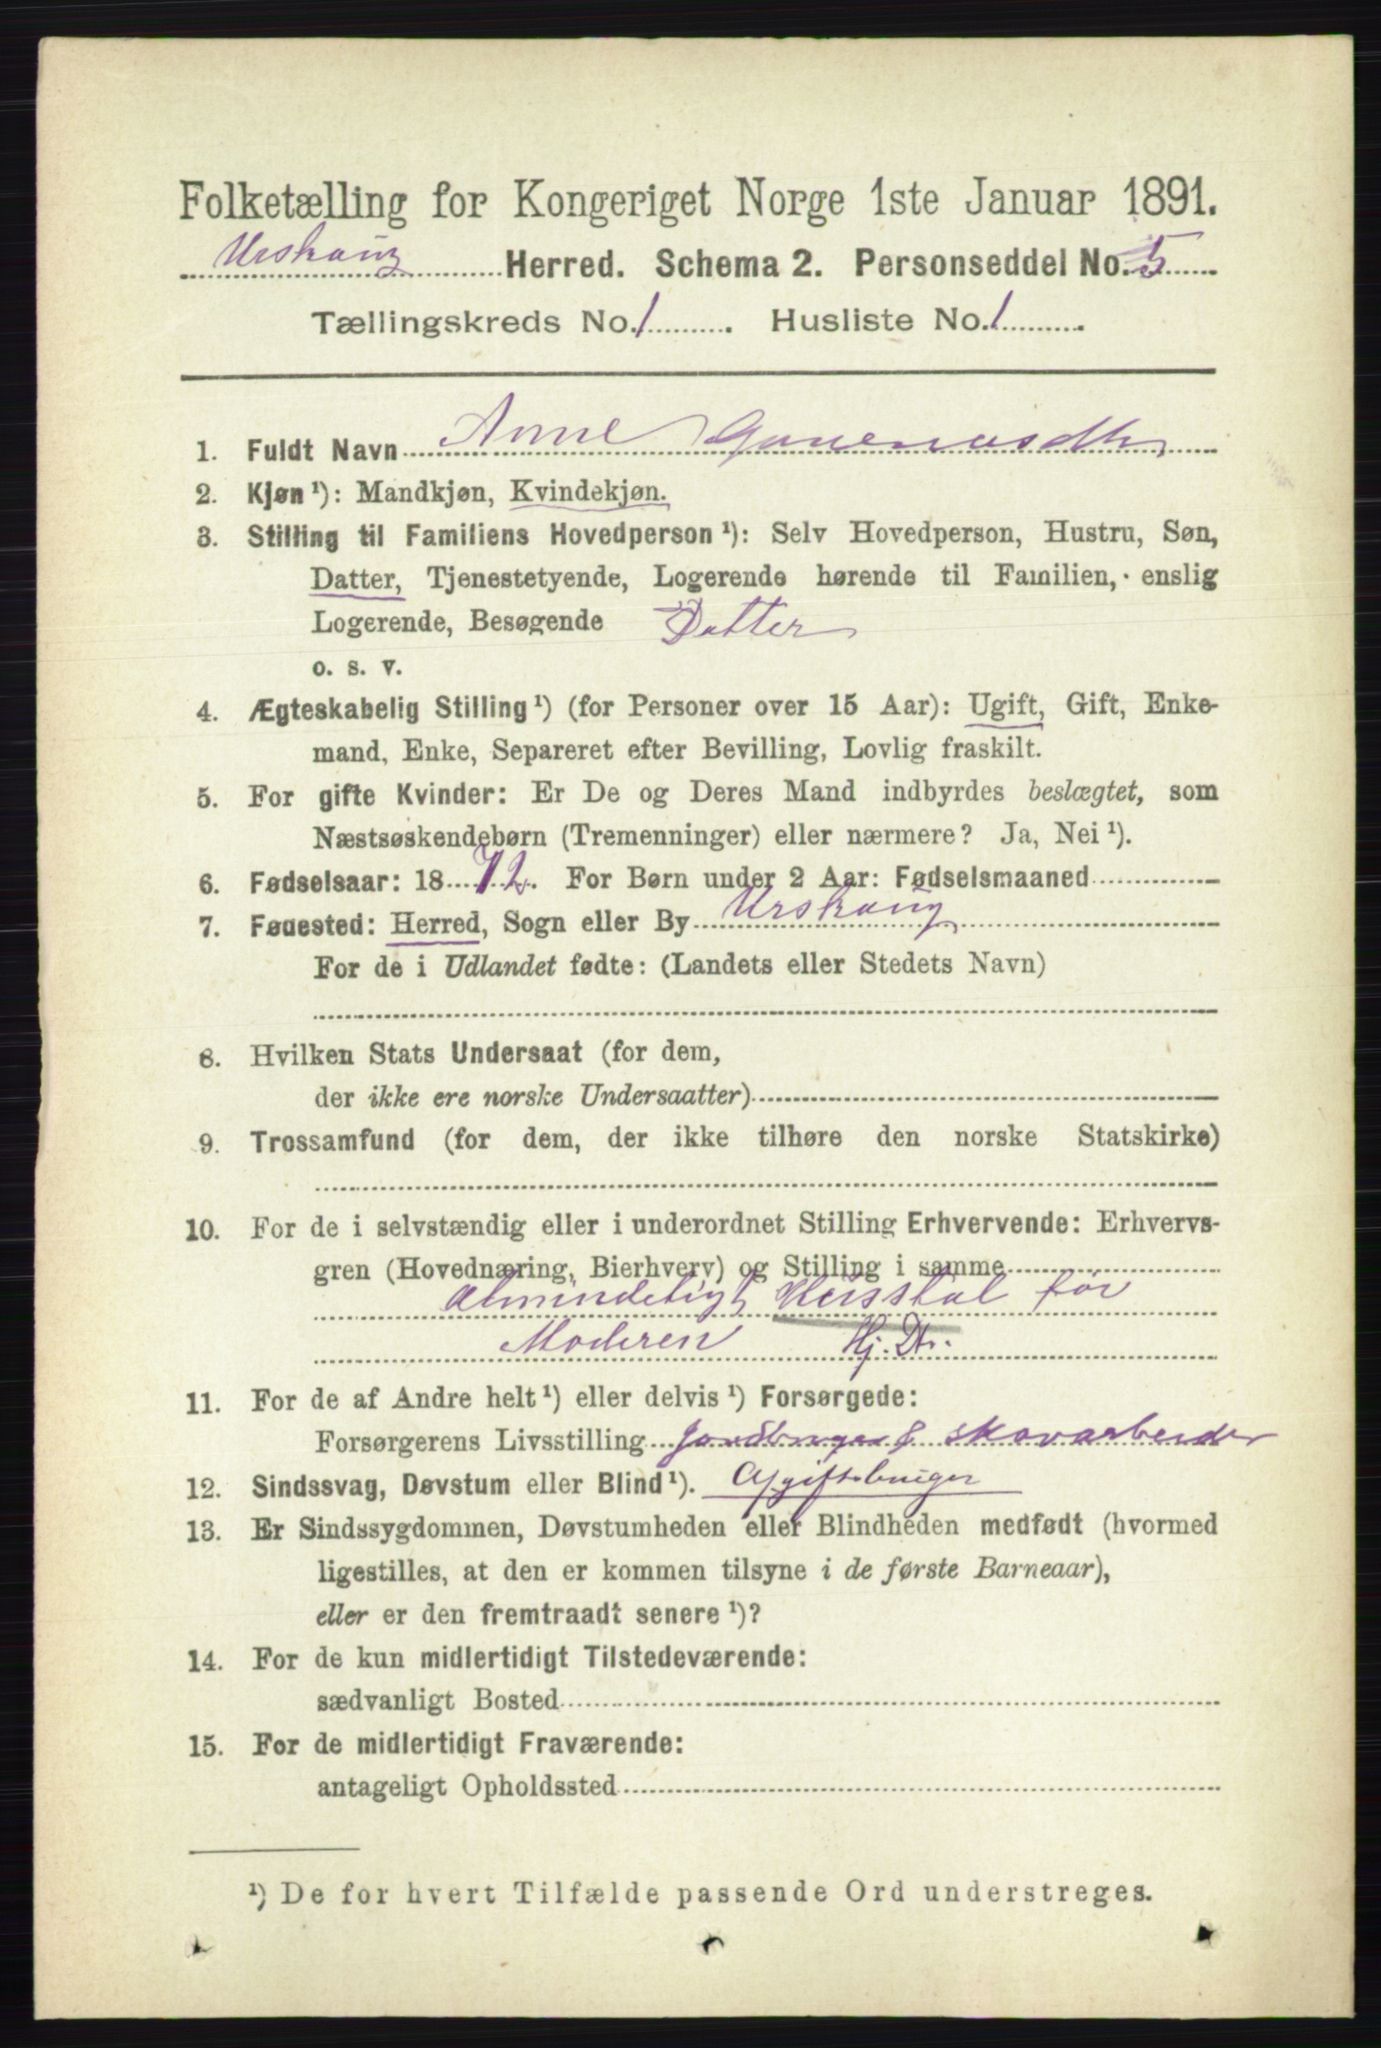 Folketælling for Kongeriget Norge 1ste Januar 1891.
Urskoug Herred. Schema 2. Personseddel No. 5
Tællingskreds No. 1. Husliste No. 1.
1. Fuldt Navn Anne
2. Kjøn ¹): Mandkjøn, Kvindekjøn.
3. Stilling til Familiens Hovedperson ¹): Selv Hovedperson, Hustru, Søn,
Datter, Tjenestetyende, Logerende hørende til Familien, enslig
Logerende, Besøgende Datter
o. s. v.
4. Ægteskabelig Stilling ¹) (for Personer over 15 Aar): Ugift, Gift, Enke-
mand, Enke, Separeret efter Bevilling, Lovlig fraskilt.
5. For gifte Kvinder: Er De og Deres Mand indbyrdes beslægtet, som
Næstsøskendebørn (Tremenninger) eller nærmere? Ja, Nei ¹).
6. Fødselsaar: 18 72. For Børn under 2 Aar: Fødselsmaaned
7. Fødested: Herred, Sogn eller By Urskoug
For de i Udlandet fødte: (Landets eller Stedets Navn)
8. Hvilken Stats Undersaat (for dem,
der ikke ere norske Undersaatter)
9. Trossamfund (for dem, der ikke tilhøre den norske Statskirke)
10. For de i selvstændig eller i underordnet Stilling Erhvervende: Erhvervs-
gren (Hovednæring, Bierhverv) og Stilling i samme
Almindeligt Husstel for
Moderen Hj. Dt.
11. For de af Andre helt ¹) eller delvis ¹) Forsørgede:
Forsørgerens Livsstilling Jordbruger & Skovarbeider
12. Sindssvag, Døvstum eller Blind ¹). Afgiftsbruger
13. Er Sindssygdommen, Døvstumheden eller Blindheden medfødt (hvormed
ligestilles, at den er kommen tilsyne i de første Barneaar),
eller er den fremtraadt senere ¹)?
14. For de kun midlertidigt Tilstedeværende:
sædvanligt Bosted
15. For de midlertidigt Fraværende:
antageligt Opholdssted
¹) De for hvert Tilfælde passende Ord understreges.